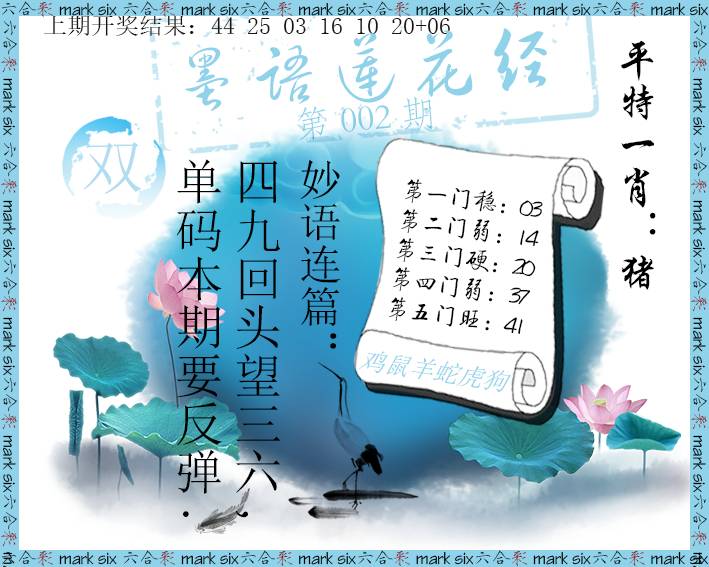 上期开奖结果：44 25 03 16 10 20+06
墨语莲花经
第 002 期
双
平特一肖：猪
妙语连篇：
四九回头望三六，
单码本期要反弹.
第一门稳：03
第二门弱：14
第三门硬：20
第四门弱：37
第五门旺：41
鸡鼠羊蛇虎狗
mark six六合彩 mark six六合彩 mark six六合彩 mark six六合彩 mark six六合彩 mark six六合彩